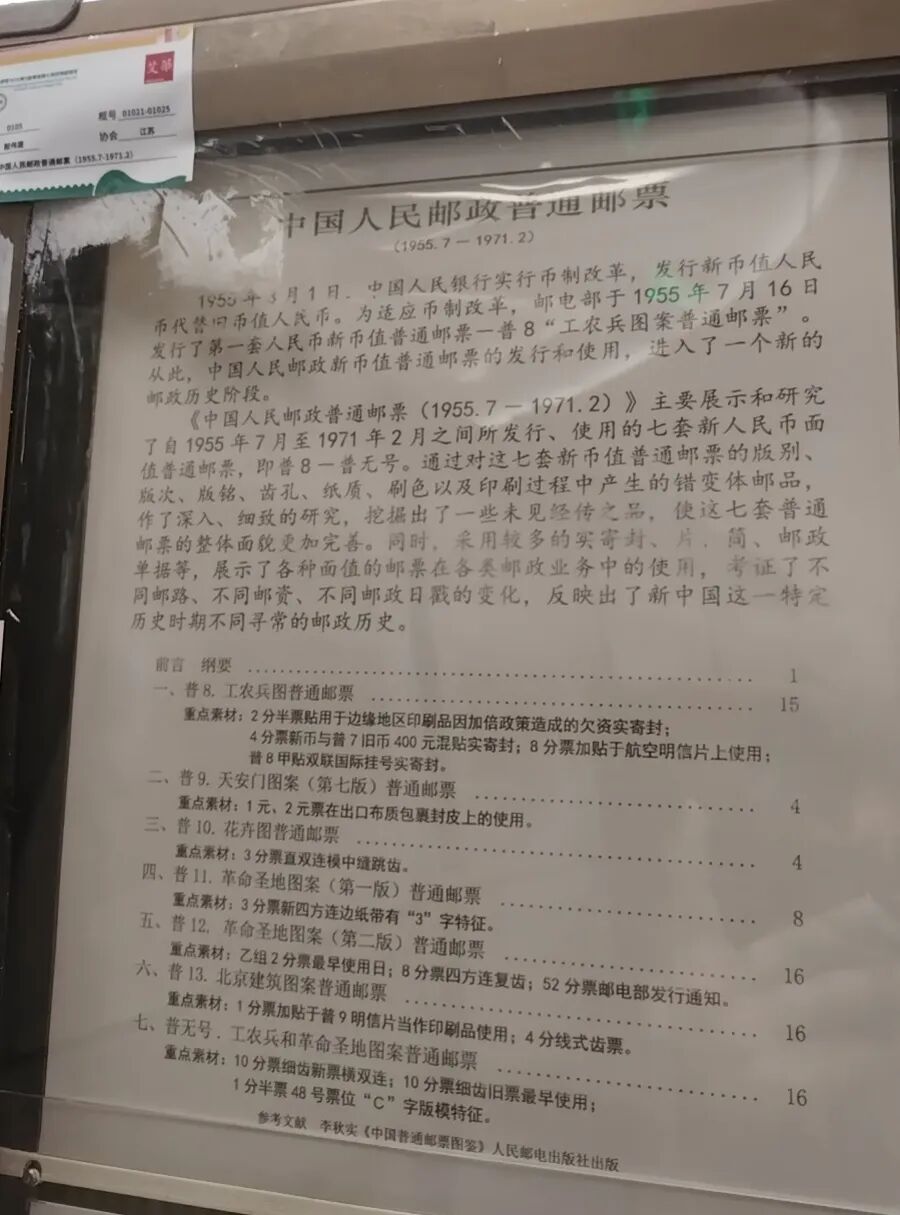 艾邮
框号 01021-01025
0105
协会 江苏
中国人民邮政普通邮票（1955.7-1971.2）
中国人民邮政普通邮票
（1955.7－1971.2）
1955年3月1日．中国人民银行实行币制改革，发行新币值人民
币代替旧币值人民币。为适应币制改革，邮电部于1955年7月16日
发行了第一套人民币新币值普通邮票—普8“工农兵图案普通邮票”。
从此，中国人民邮政新币值普通邮票的发行和使用，进入了一个新的
邮政历史阶段。
《中国人民邮政普通邮票（1955.7－1971.2）》主要展示和研究
了自1955年7月至1971年2月之间所发行、使用的七套新人民币面
值普通邮票，即普8－普无号。通过对这七套新币值普通邮票的版别、
版次、版铭、齿孔、纸质、刷色以及印刷过程中产生的错变体邮品，
作了深入、细致的研究，挖掘出了一些未见经传之品，使这七套普通
邮票的整体面貌更加完善。同时，采用较多的实寄封、片．简、邮政
单据等，展示了各种面值的邮票在各类邮政业务中的使用，考证了不
同邮路、不同邮资、不同邮政日戳的变化，反映出了新中国这一特定
历史时期不同寻常的邮政历史。
前言 纲要 …… 1
一、普8．工农兵图普通邮票 …… 15
重点素材：2分半票贴用于边缘地区印刷品因加倍政策造成的欠资实寄封；
4分票新币与普7旧币400元混贴实寄封；8分票加贴于航空明信片上使用；
普8甲贴双联国际挂号实寄封。
二、普9．天安门图案（第七版）普通邮票 …… 4
重点素材：1元、2元票在出口布质包裹封皮上的使用。
三、普10．花卉图普通邮票 …… 4
重点素材：3分票直双连模中缝跳齿。
四、普11．革命圣地图案（第一版）普通邮票 …… 8
重点素材：3分票新四方连边纸带有“3”字特征。
五、普12．革命圣地图案（第二版）普通邮票 …… 16
重点素材：乙组2分票最早使用日；8分票四方连复齿；52分票邮电部发行通知。
六、普13．北京建筑图案普通邮票 …… 16
重点素材：1分票加贴于普9明信片当作印刷品使用；4分线式齿票。
七、普无号．工农兵和革命圣地图案普通邮票 …… 16
重点素材：10分票细齿新票横双连；10分票细齿旧票最早使用；
1分半票48号票位“C”字版模特征。
参考文献 李秋实《中国普通邮票图鉴》人民邮电出版社出版